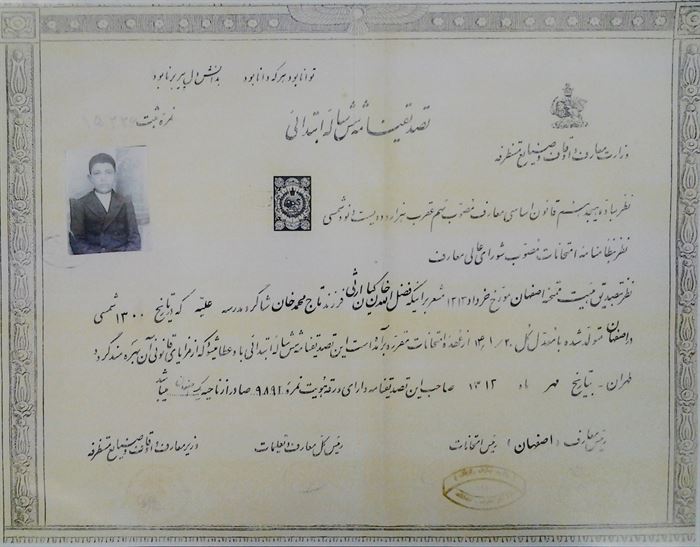 توانا بود هر که دانا بود بدانش دل پیر برنا بود
نمره ثبت
تصدیقنامه شش ساله ابتدائی
وزارت معارف و اوقاف و صنایع مستظرفه
نظر بماده هیجدهم قانون اساسی معارف مصوب دهم عقرب هزار و دویست و نود شمسی
نظر بنظامنامه امتحانات مصوب شورای عالی معارف
نظر بتصدیق هیئت ممتحنه اصفهان مورخ خرداد ۱۳۱۳ مشعر براینکه فضل الله خان کیان ارثی فرزند تاج محمد خان شاگرد مدرسه علیه که در تاریخ ۱۳۰۰ شمسی
در اصفهان متولد شده با معدل کل از عهده امتحانات مقرره برآمده است این تصدیقنامه شش ساله ابتدائی باو عطا میشود که از مزایای قانونی آن بهره مند گردد
طهران - بتاریخ مهر ماه صاحب این تصدیقنامه دارای ورقه هویت نمره ۹۸۹۲ صادر از ناحیه یک میباشد
رئیس معارف (اصفهان) رئیس امتحانات رئیس کل معارف و تعلیمات وزیر معارف و اوقاف و صنایع مستظرفه